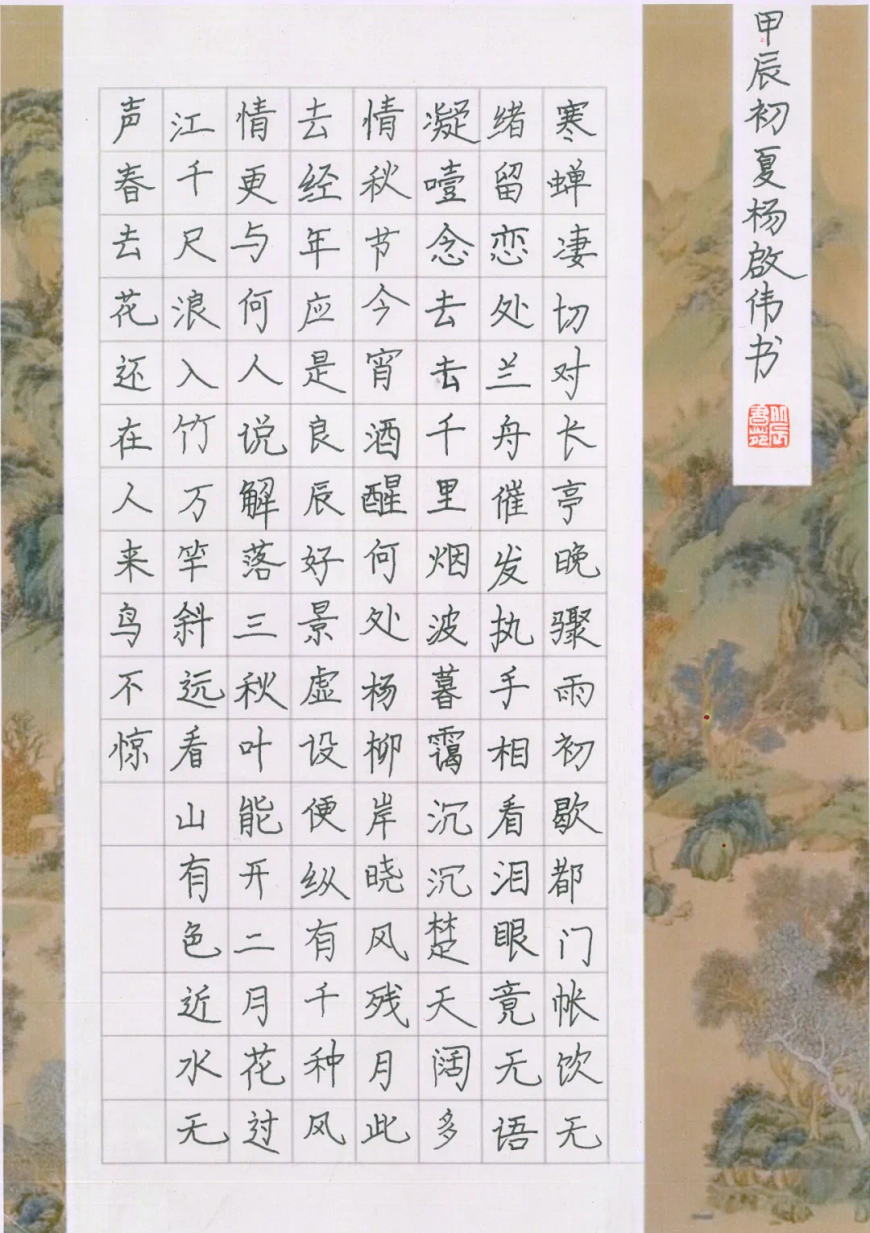 寒蝉凄切对长亭晚骤雨初歇都门帐饮无
绪留恋处兰舟催发执手相看泪眼竟无语
凝噎念去去千里烟波暮霭沉沉楚天阔多
情秋节今宵酒醒何处杨柳岸晓风残月此
去经年应是良辰好景虚设便纵有千种风
情更与何人说解落三秋叶能开二月花过
江千尺浪入竹万竿斜远看山有色近水无
声春去花还在人来鸟不惊
甲辰初夏杨啟伟书